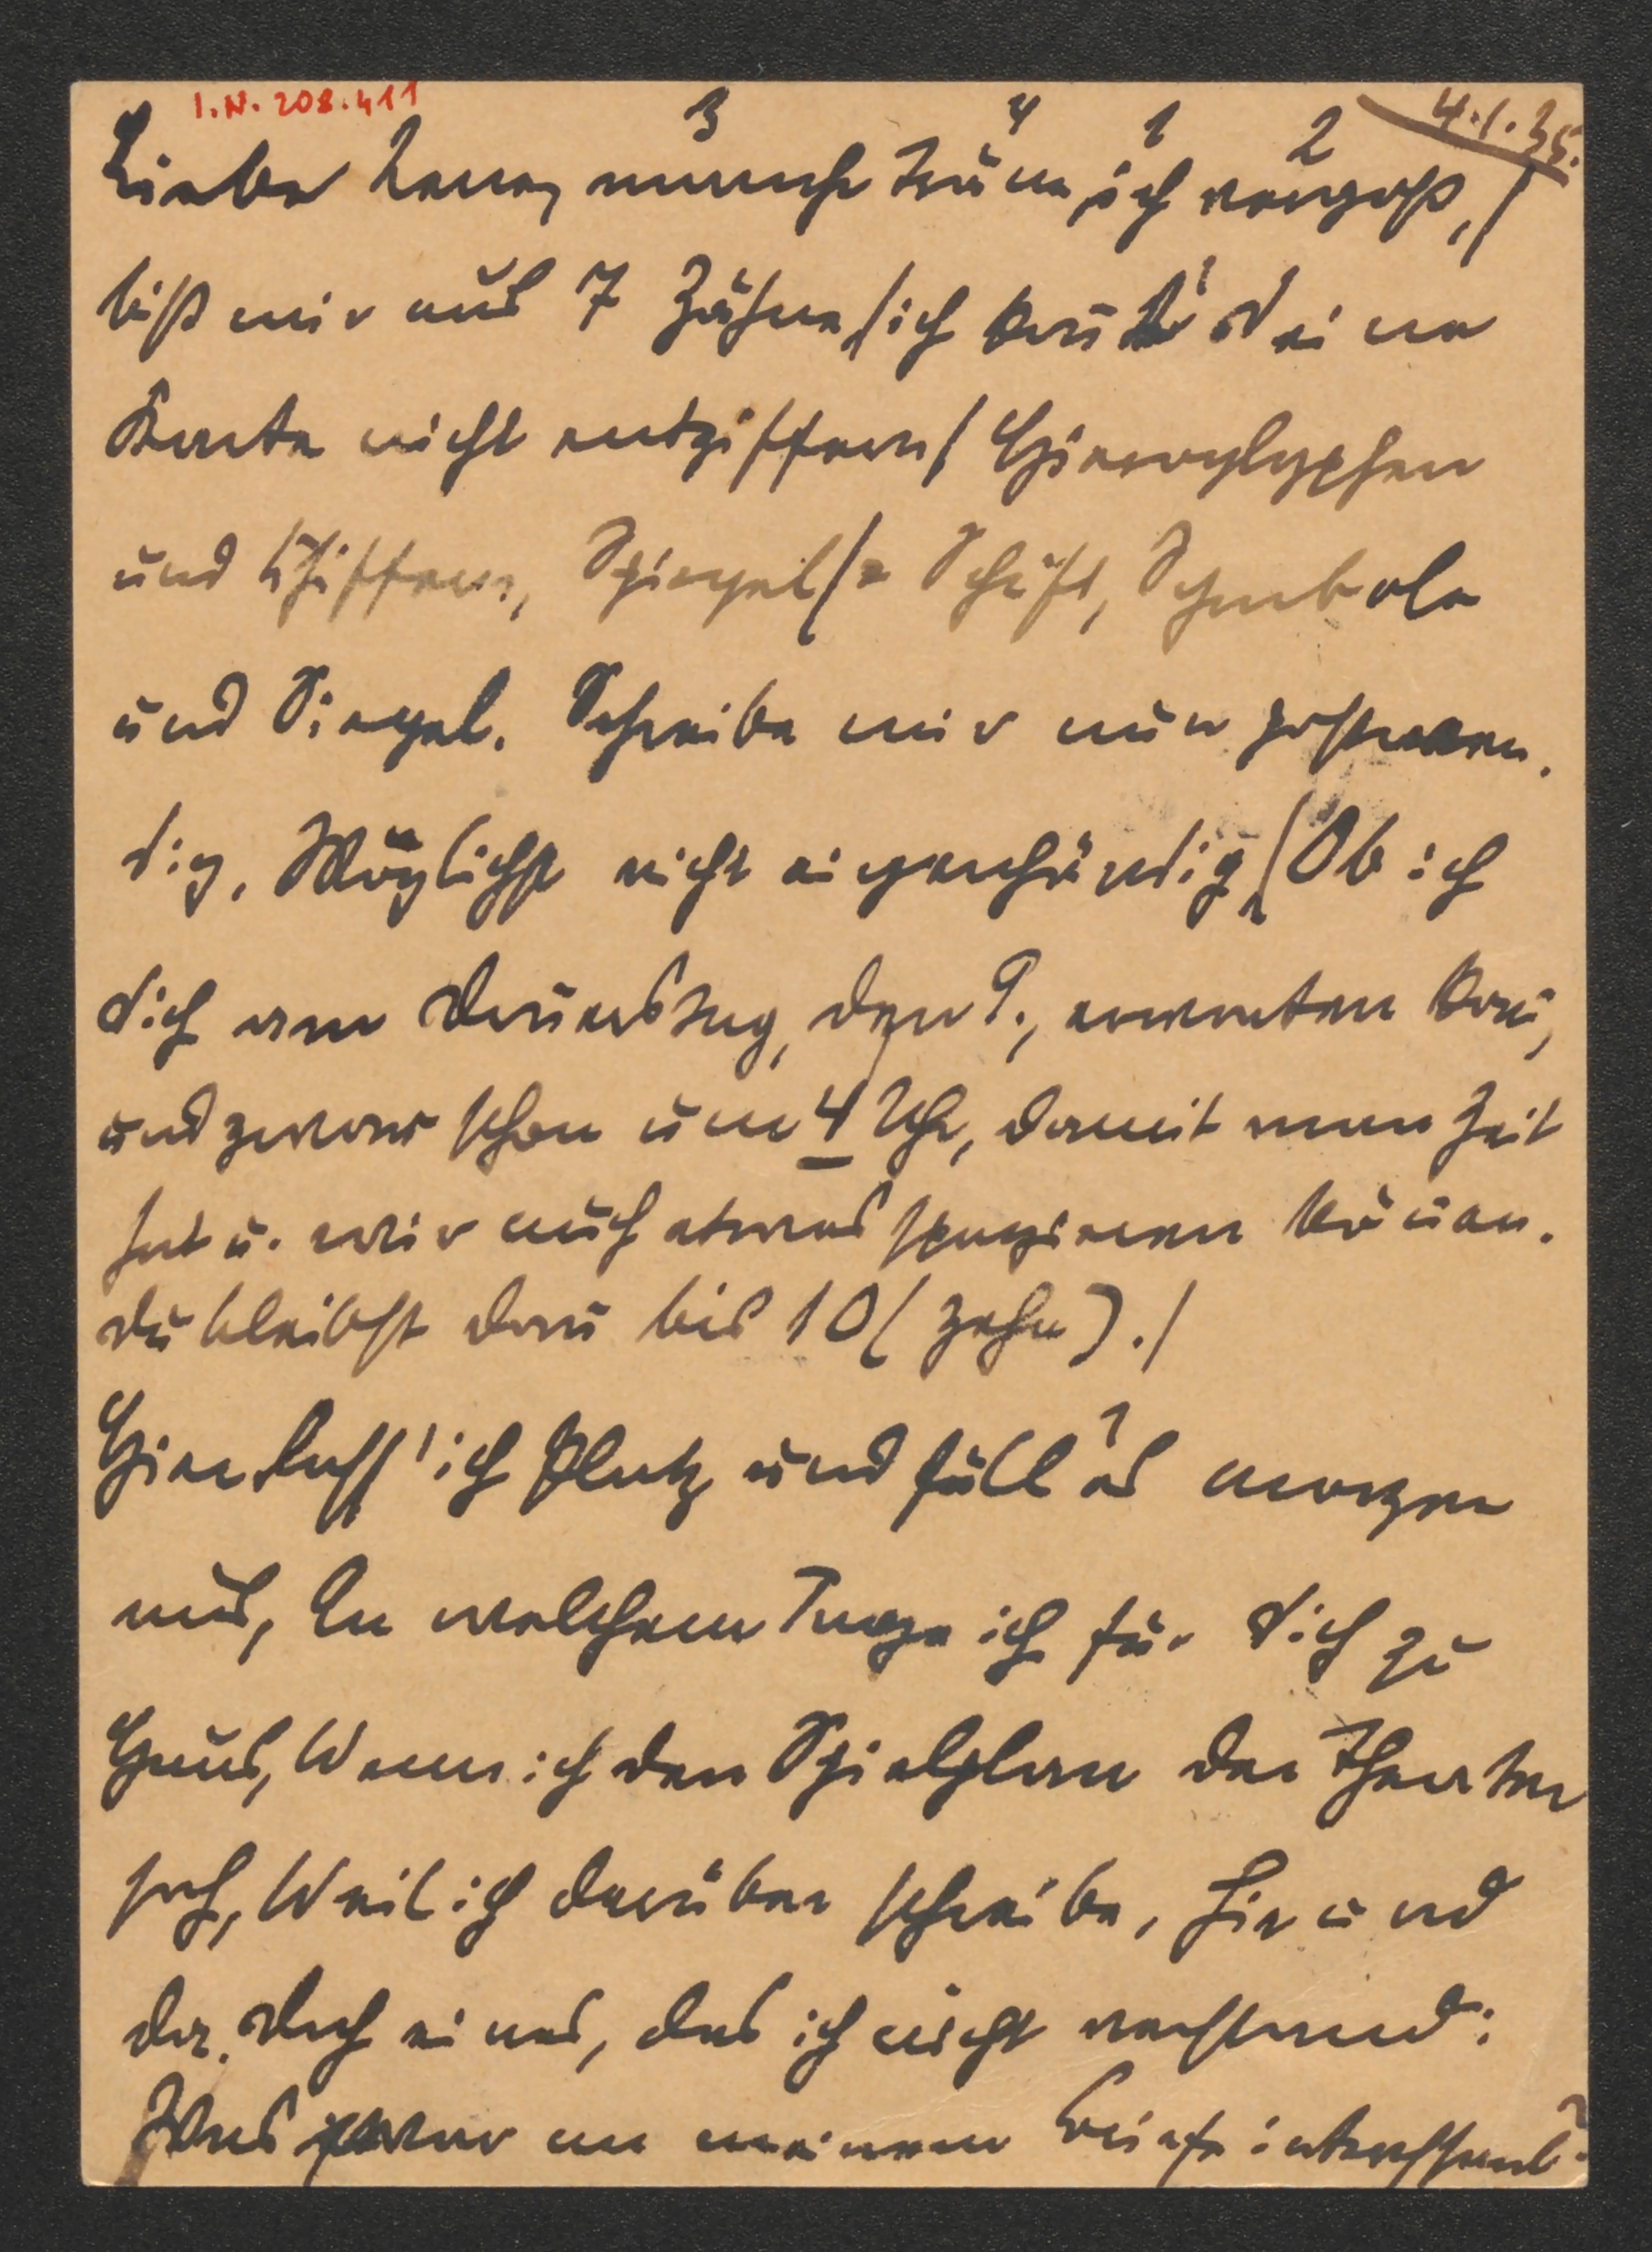 I.N. 208.411
4.1.35.
3 4 1 2
Liebe Lene, manche Träne ich vergoß, /
biß mir aus 7 Zähne / ich kan̄t' deine
Karte nicht entziffern / Hieroglyphen
und Chiffern, Spiegel / = Schrift, Symbole
und Siegel. Schreibe mir nun postwen-
dig, Möglichst nicht eigenhändig, / Ob ich
dich am Don̄erstag, den 9., erwarten kan̄,
und zwar schon um 4 Uhr, damit man Zeit
hat u. wir auch etwas spazieren kön̄en.
du bleibst dan̄ bis 10 (zehn). /
Hier lass' ich Platz und füll' es morgen
aus, An welchem Tage ich für dich zu
Haus, Wenn ich den Spielplan der Theater
sah, Weil ich darüber schreibe, hie und
da. Doch eines, das ich nicht verstand:
Was war an meinem Briefe intressant?